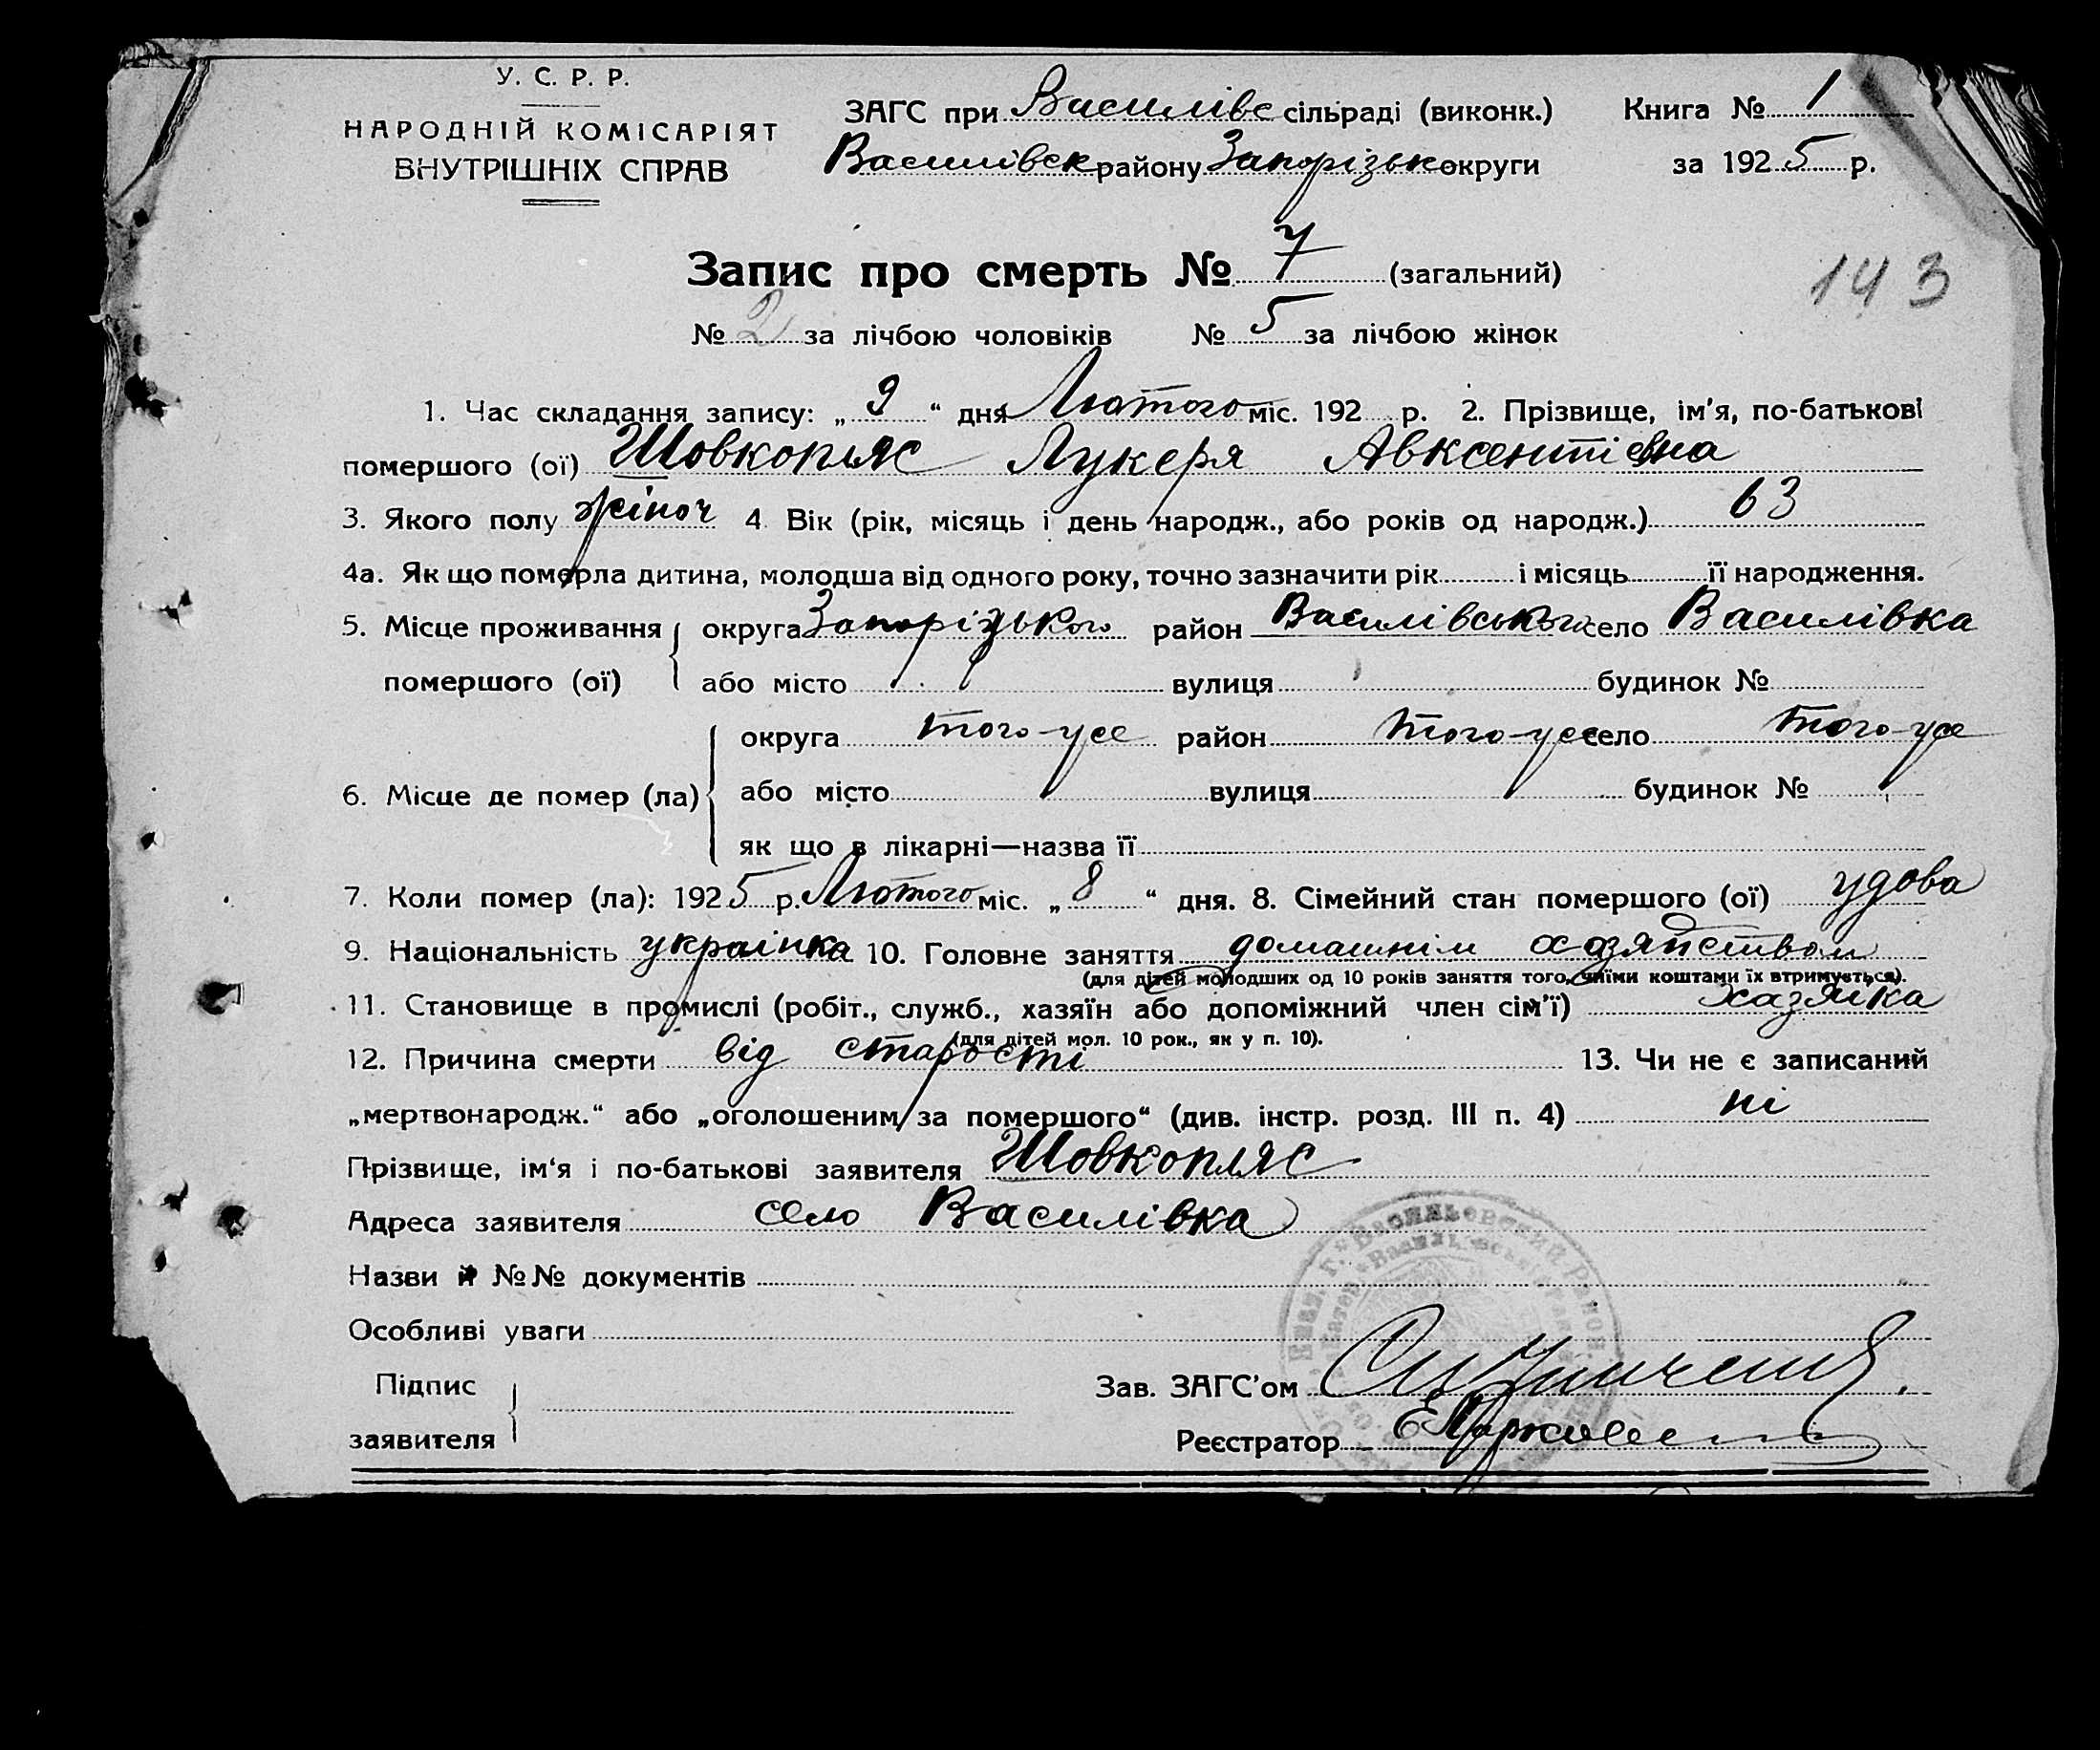 У. С. Р. Р.
НАРОДНІЙ КОМІСАРІЯТ
ВНУТРІШНІХ СПРАВ
ЗАГС при Василівс сільраді (виконк.) Книга № 1
Василівск району Запорізьк округи за 1925 р.
Запис про смерть № 7 (загальний)
143
№ 2 за лічбою чоловіків № 5 за лічбою жінок
1. Час складання запису: „ 9 “ дня Лютого міс. 192 р. 2. Прізвище, ім'я, по-батькові
помершого (ої) Шовкопляс Лукеря Авксентієвна
3. Якого полу жіноч 4 Вік (рік, місяць і день народж., або років од народж.) 63
4а. Як що померла дитина, молодша від одного року, точно зазначити рік і місяць її народження.
5. Місце проживання округа Запорізького район Василівського село Василівка
помершого (ої) або місто вулиця будинок №
округа того-усе район того-усе село того-усе
6. Місце де помер (ла) або місто вулиця будинок №
як що в лікарні—назва її
7. Коли помер (ла): 1925 р. Лютого міс. „ 8 “ дня. 8. Сімейний стан помершого (ої) удова
9. Національність українка 10. Головне заняття домашнім хозяйством
(для дітей молодших од 10 років заняття того, чиїми коштами їх втримується).
11. Становище в промислі (робіт., служб., хазяїн або допоміжний член сім'ї) хазяйка
(для дітей мол. 10 рок., як у п. 10).
12. Причина смерти від старості 13. Чи не є записаний
„мертвонародж.“ або „оголошеним за помершого“ (див. інстр. розд. III п. 4) ні
Прізвище, ім‘я і по-батькові заявителя Шовкопляс
Адреса заявителя село Василівка
Назви й №№ документів
Особливі уваги
Підпис
заявителя
Зав. ЗАГС'ом
Реєстратор